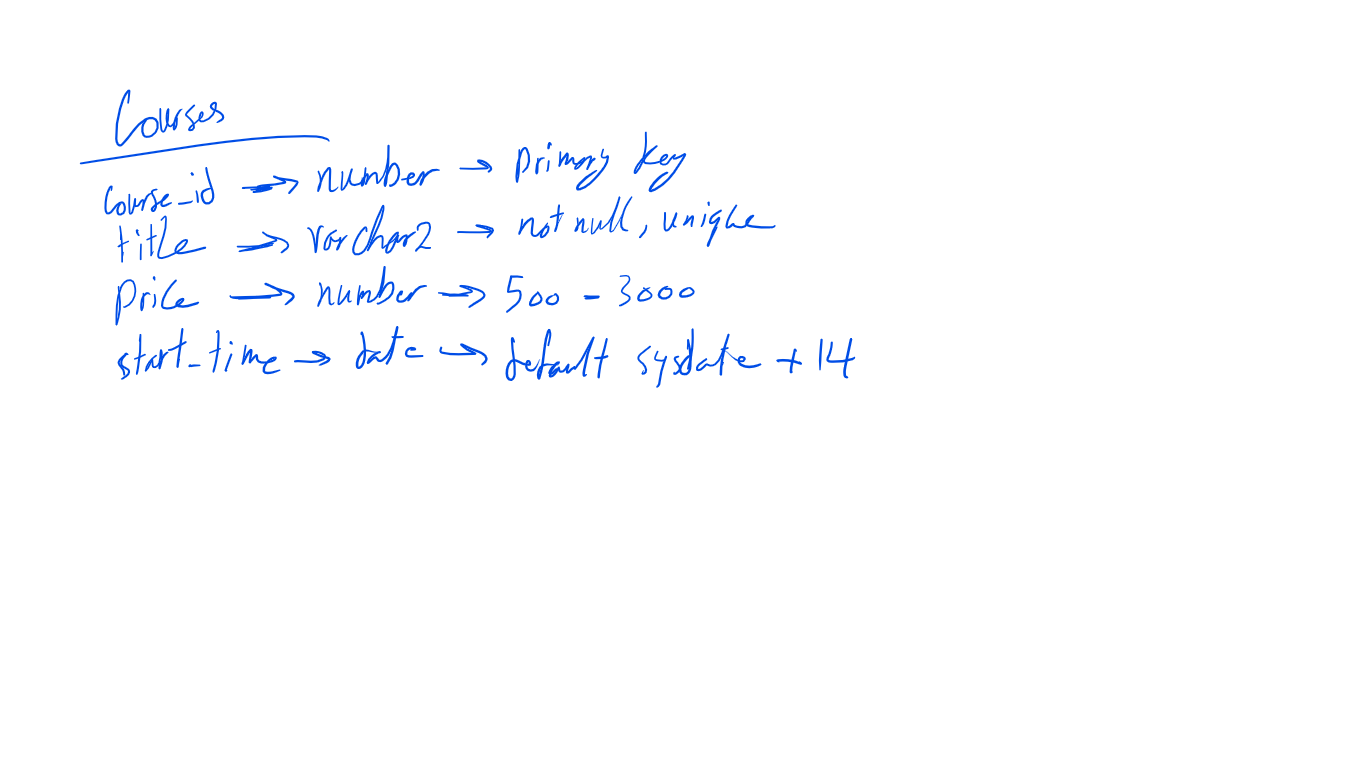 Courses
course_id → number → primary key
title → varchar2 → not null, unique
price → number → 500 - 3000
start_time → date → default sysdate + 14